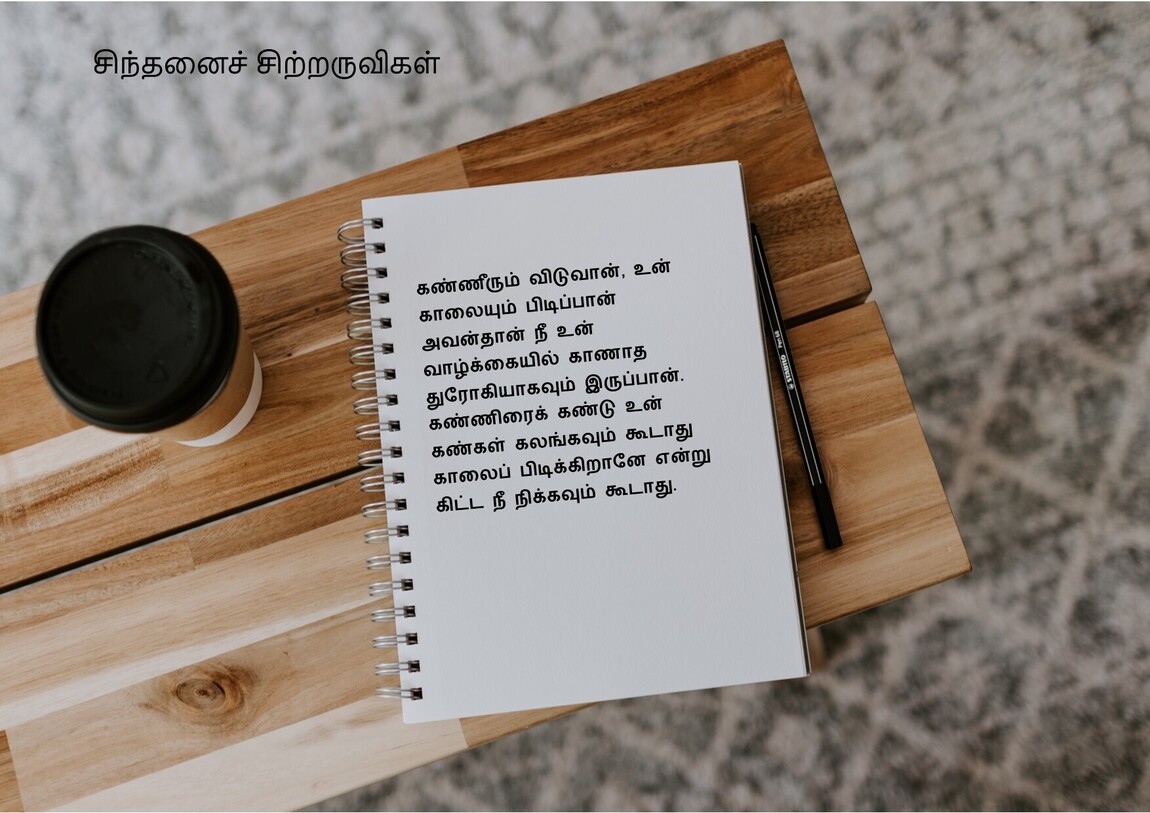 சிந்தனைச் சிற்றருவிகள்
கண்ணீரும் விடுவான், உன்
காலையும் பிடிப்பான்
அவன்தான் நீ உன்
வாழ்க்கையில் காணாத
துரோகியாகவும் இருப்பான்.
கண்ணிரைக் கண்டு உன்
கண்கள் கலங்கவும் கூடாது
காலைப் பிடிக்கிறானே என்று
கிட்ட நீ நிக்கவும் கூடாது.
STABILO